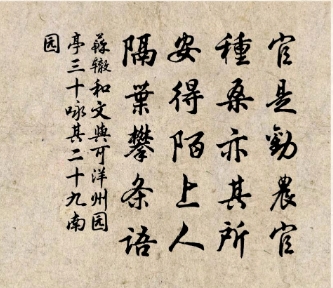 官是勸農官
種桑亦其所
安得陌上人
隔葉攀条語
蘇辙和文與可洋州园
亭三十咏其二十九南
园